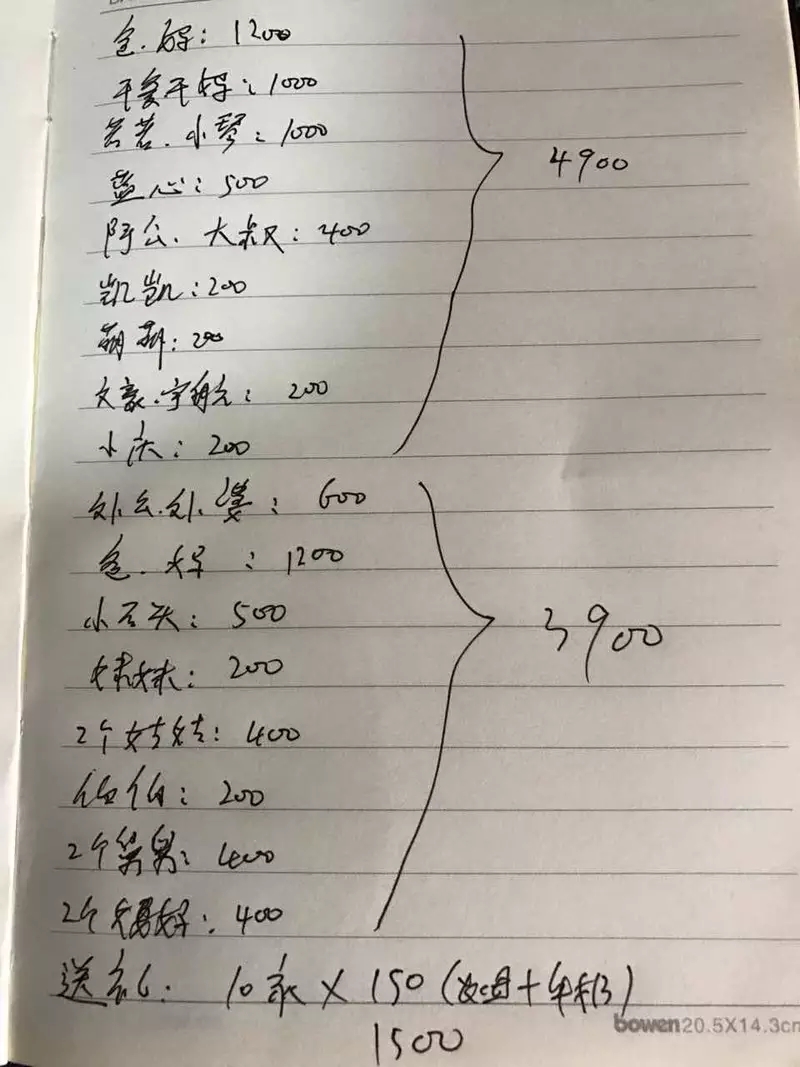 爸.妈: 1200
干爹干妈: 1000
若若.小琴: 1000
蓝心: 500
阿公.大叔: 400
凯凯: 200
萌萌: 200
文豪.宇航: 200
小庆: 200
4900
外公.外婆: 600
爸.妈: 1200
小石头: 500
妹妹: 200
2个姑姑: 400
伯伯: 200
2个舅舅: 400
2个舅妈: 400
3900
送礼: 10家×150(烟+年糕)
1500
bowen 20.5X14.3cm